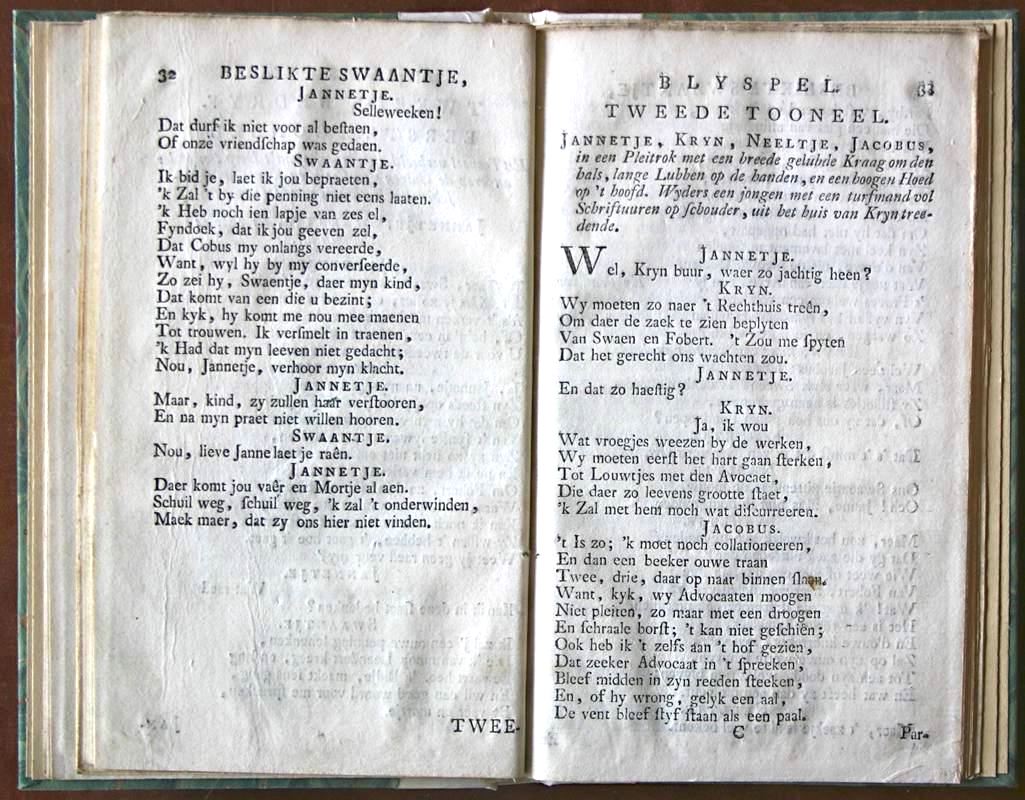 32 BESLIKTE SWAANTJE,
JANNETJE.
Selleweeken!
Dat durf ik niet voor al beſtaen,
Of onze vriendſchap was gedaen.
SWAANTJE.
Ik bid je, laet ik jou bepraeten,
'k Zal 't by die penning niet eens laaten.
'k Heb noch ien lapje van zes el,
Fyndoek, dat ik jou geeven zel,
Dat Cobus my onlangs vereerde,
Want, wyl hy by my converſeerde,
Zo zei hy, Swaentje, daer myn kind,
Dat komt van een die u bezint;
En kyk, hy komt me nou mee maenen
Tot trouwen. Ik verſmelt in traenen,
'k Had dat myn leeven niet gedacht;
Nou, Jannetje, verhoor myn klacht.
JANNETJE.
Maar, kind, zy zullen haar verſtooren,
En na myn praet niet willen hooren.
SWAANTJE.
Nou, lieve Janne laet je raên.
JANNETJE.
Daer komt jou vaêr en Mortje al aen.
Schuil weg, ſchuil weg, 'k zal 't onderwinden,
Maek maer, dat zy ons hier niet vinden.
TWEE-
BLYSPEL. 33
TWEEDE TOONEEL.
JANNETJE, KRYN, NEELTJE, JACOBUS,
in een Pleitrok met een breede gelubde Kraag om den
hals, lange Lubben op de handen, en een hoogen Hoed
op 't hoofd. Wyders een jongen met een turfmand vol
Schriftuuren op ſchouder, uit het huis van Kryn tree-
dende.
JANNETJE.
Wel, Kryn buur, waer zo jachtig heen?
KRYN.
Wy moeten zo naer 't Rechthuis treên,
Om daer de zaek te zien beplyten
Van Swaen en Fobert. 't Zou me ſpyten
Dat het gerecht ons wachten zou.
JANNETJE.
En dat zo haeſtig?
KRYN.
Ja, ik wou
Wat vroegjes weezen by de werken,
Wy moeten eerſt het hart gaan ſterken,
Tot Louwtjes met den Avocaet,
Die daer zo leevens grootte ſtaet,
'k Zal met hem noch wat diſcurreeren.
JACOBUS.
't Is zo; 'k moet noch collationeeren,
En dan een beeker ouwe traan
Twee, drie, daar op naar binnen ſlaan.
Want, kyk, wy Advocaaten moogen
Niet pleiten, zo maar met een droogen
En ſchraale borſt; 't kan niet geſchiên;
Ook heb ik 't zelfs aan 't hof gezien,
Dat zeeker Advocaat in 't ſpreeken,
Bleef midden in zyn reeden ſteeken,
En, of hy wrong, gelyk een aal,
De vent bleef ſtyf ſtaan als een paal.
C Par-